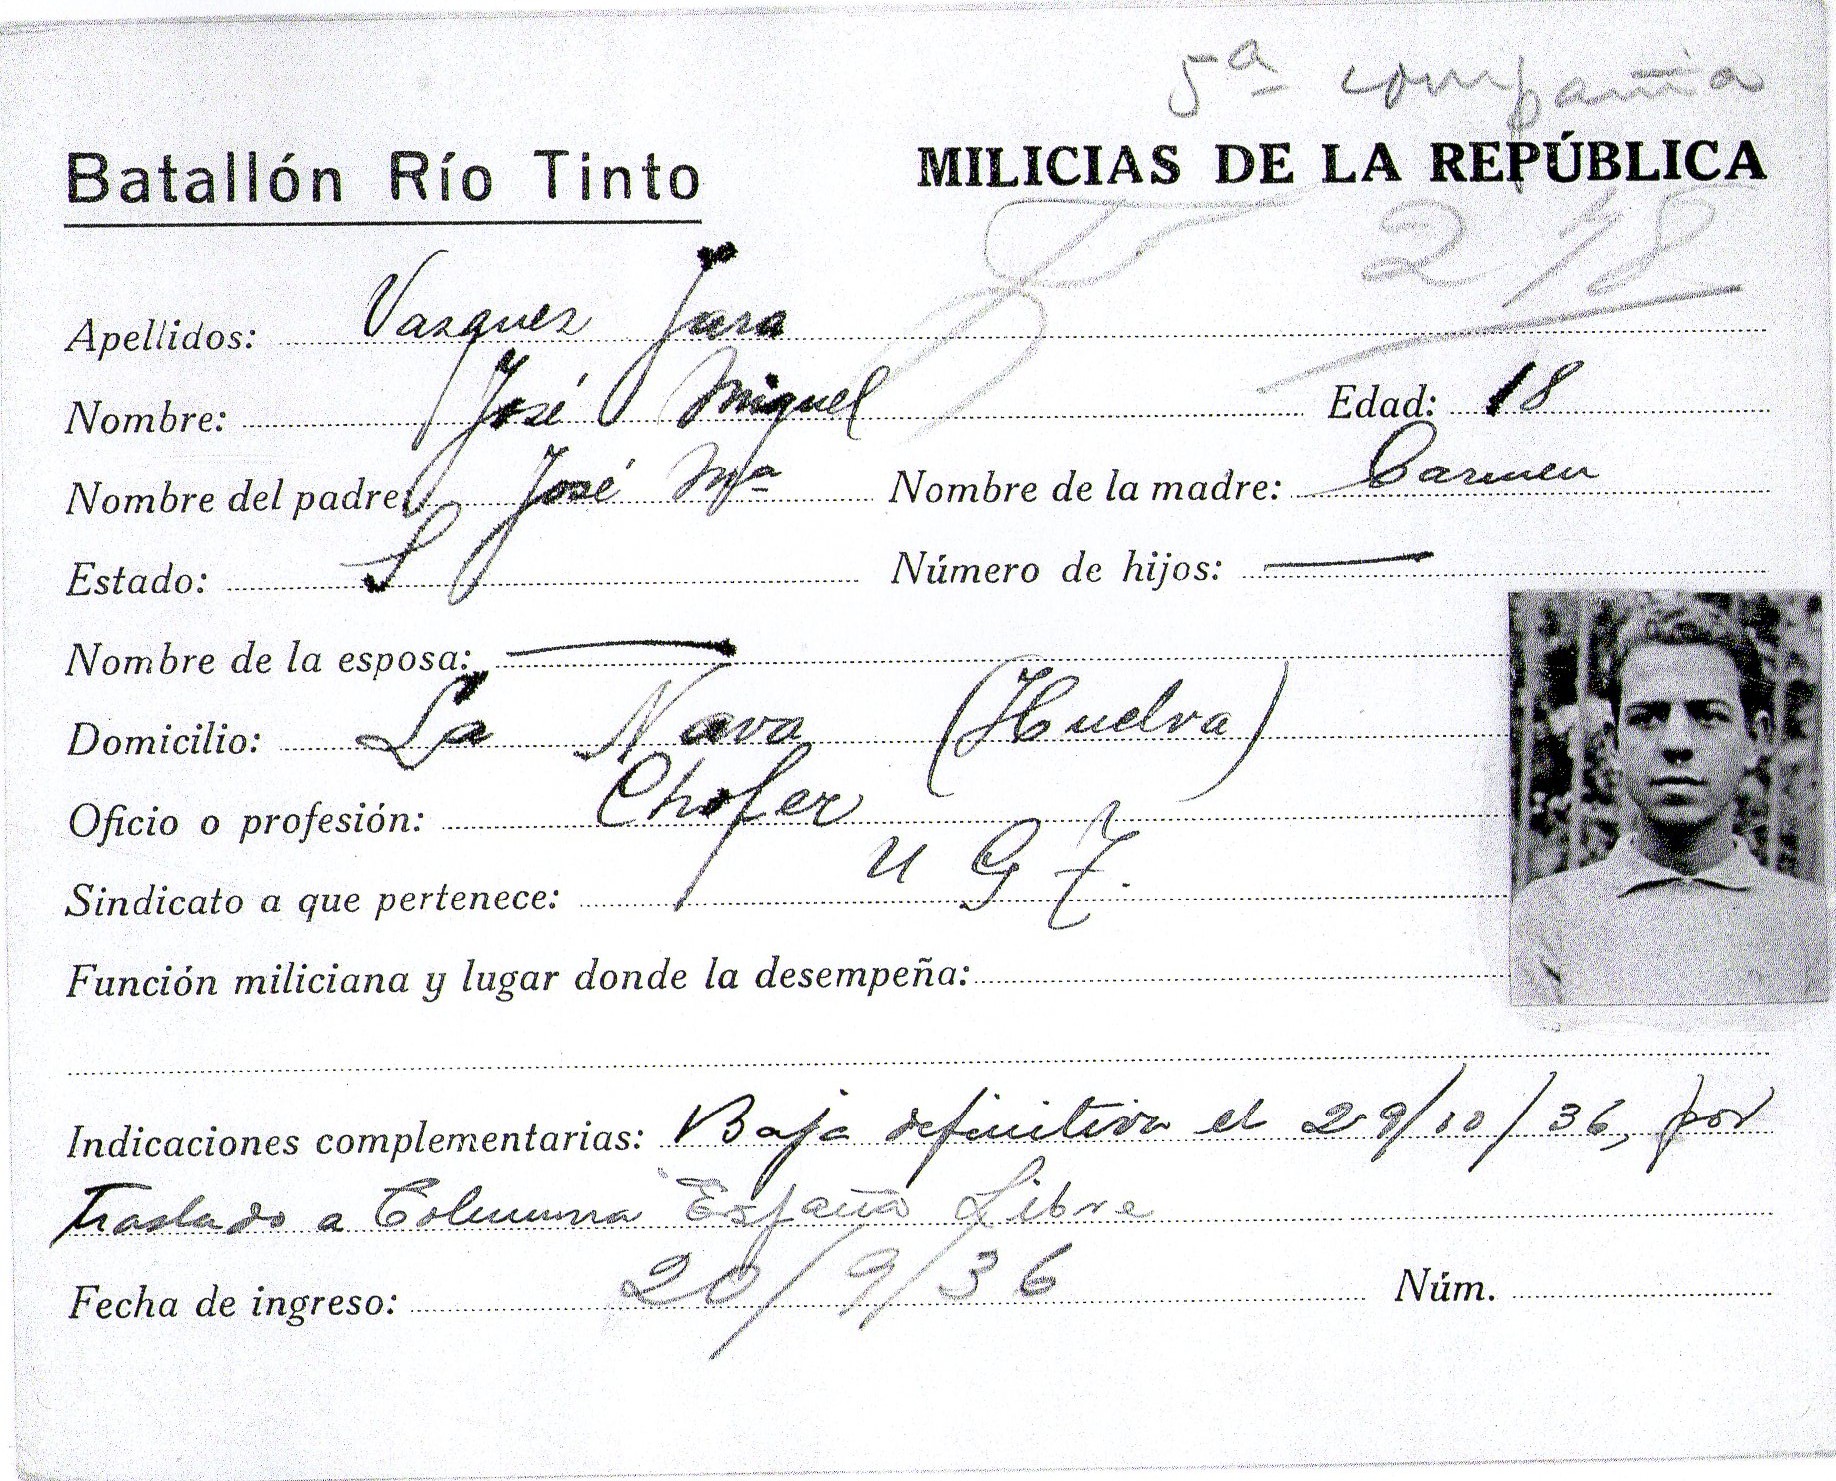 5ª compañia
Batallón Río Tinto MILICIAS DE LA REPÚBLICA
218
Apellidos: Vasquez Jara
Nombre: José Miguel Edad: 18
Nombre del padre: José Mª Nombre de la madre: Carmen
Estado: S Número de hijos: —
Nombre de la esposa: —
Domicilio: La Nava (Huelva)
Oficio o profesión: Chofer
Sindicato a que pertenece: U G T.
Función miliciana y lugar donde la desempeña:
Indicaciones complementarias: Baja definitiva el 29/10/36, por
Traslado a Columna España Libre
Fecha de ingreso: 20/9/36 Núm.